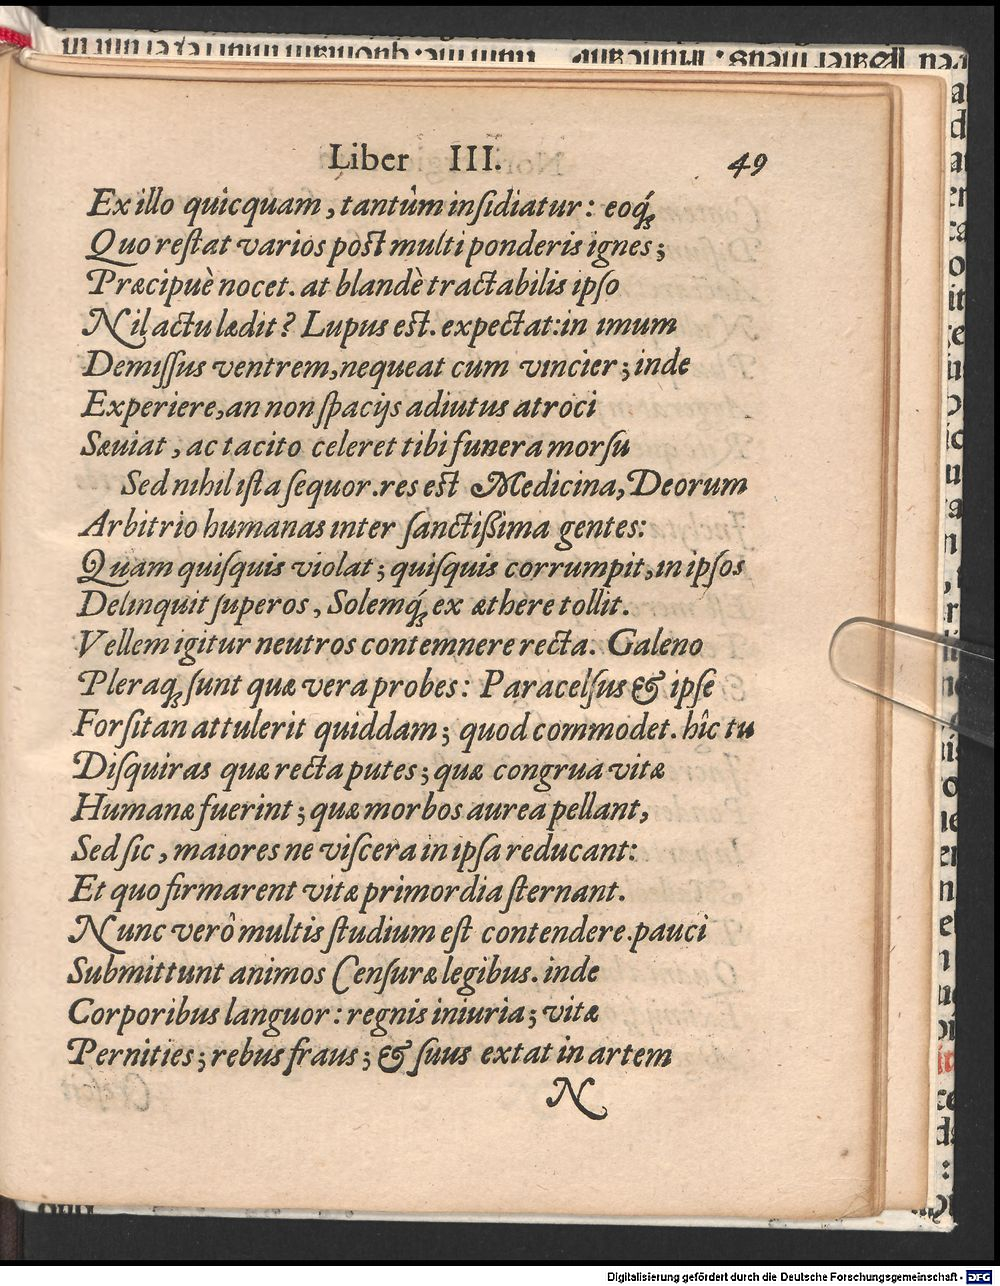 Liber III. 49
Ex illo quicquam, tantùm insidiatur: eoq́;
Quo restat varios post multi ponderis ignes;
Præcipuè nocet. at blandè tractabilis ipso
Nil actu lædit? Lupus est. expectat: in imum
Demissus ventrem, nequeat cum vincier; inde
Experiere, an non spacijs adiutus atroci
Sæuiat, ac tacito celeret tibi funera morsu
Sed nihil ista sequor. res est Medicina, Deorum
Arbitrio humanas inter sanctißima gentes:
Quam quisquis violat; quisquis corrumpit, in ipsos
Delinquit superos, Solemq́; ex æthere tollit.
Vellem igitur neutros contemnere recta. Galeno
Pleraq; sunt quæ vera probes: Paracelsus & ipse
Forsitan attulerit quiddam; quod commodet. hîc tu
Disquiras quæ recta putes; quæ congrua vitæ
Humanæ fuerint; quæ morbos aurea pellant,
Sed sic, maiores ne viscera in ipsa reducant:
Et quo firmarent vitæ primordia sternant.
Nunc verò multis studium est contendere. pauci
Submittunt animos Censuræ legibus. inde
Corporibus languor: regnis iniuria; vitæ
Pernities; rebus fraus; & suus extat in artem
N
Digitalisierung gefördert durch die Deutsche Forschungsgemeinschaft - DFG